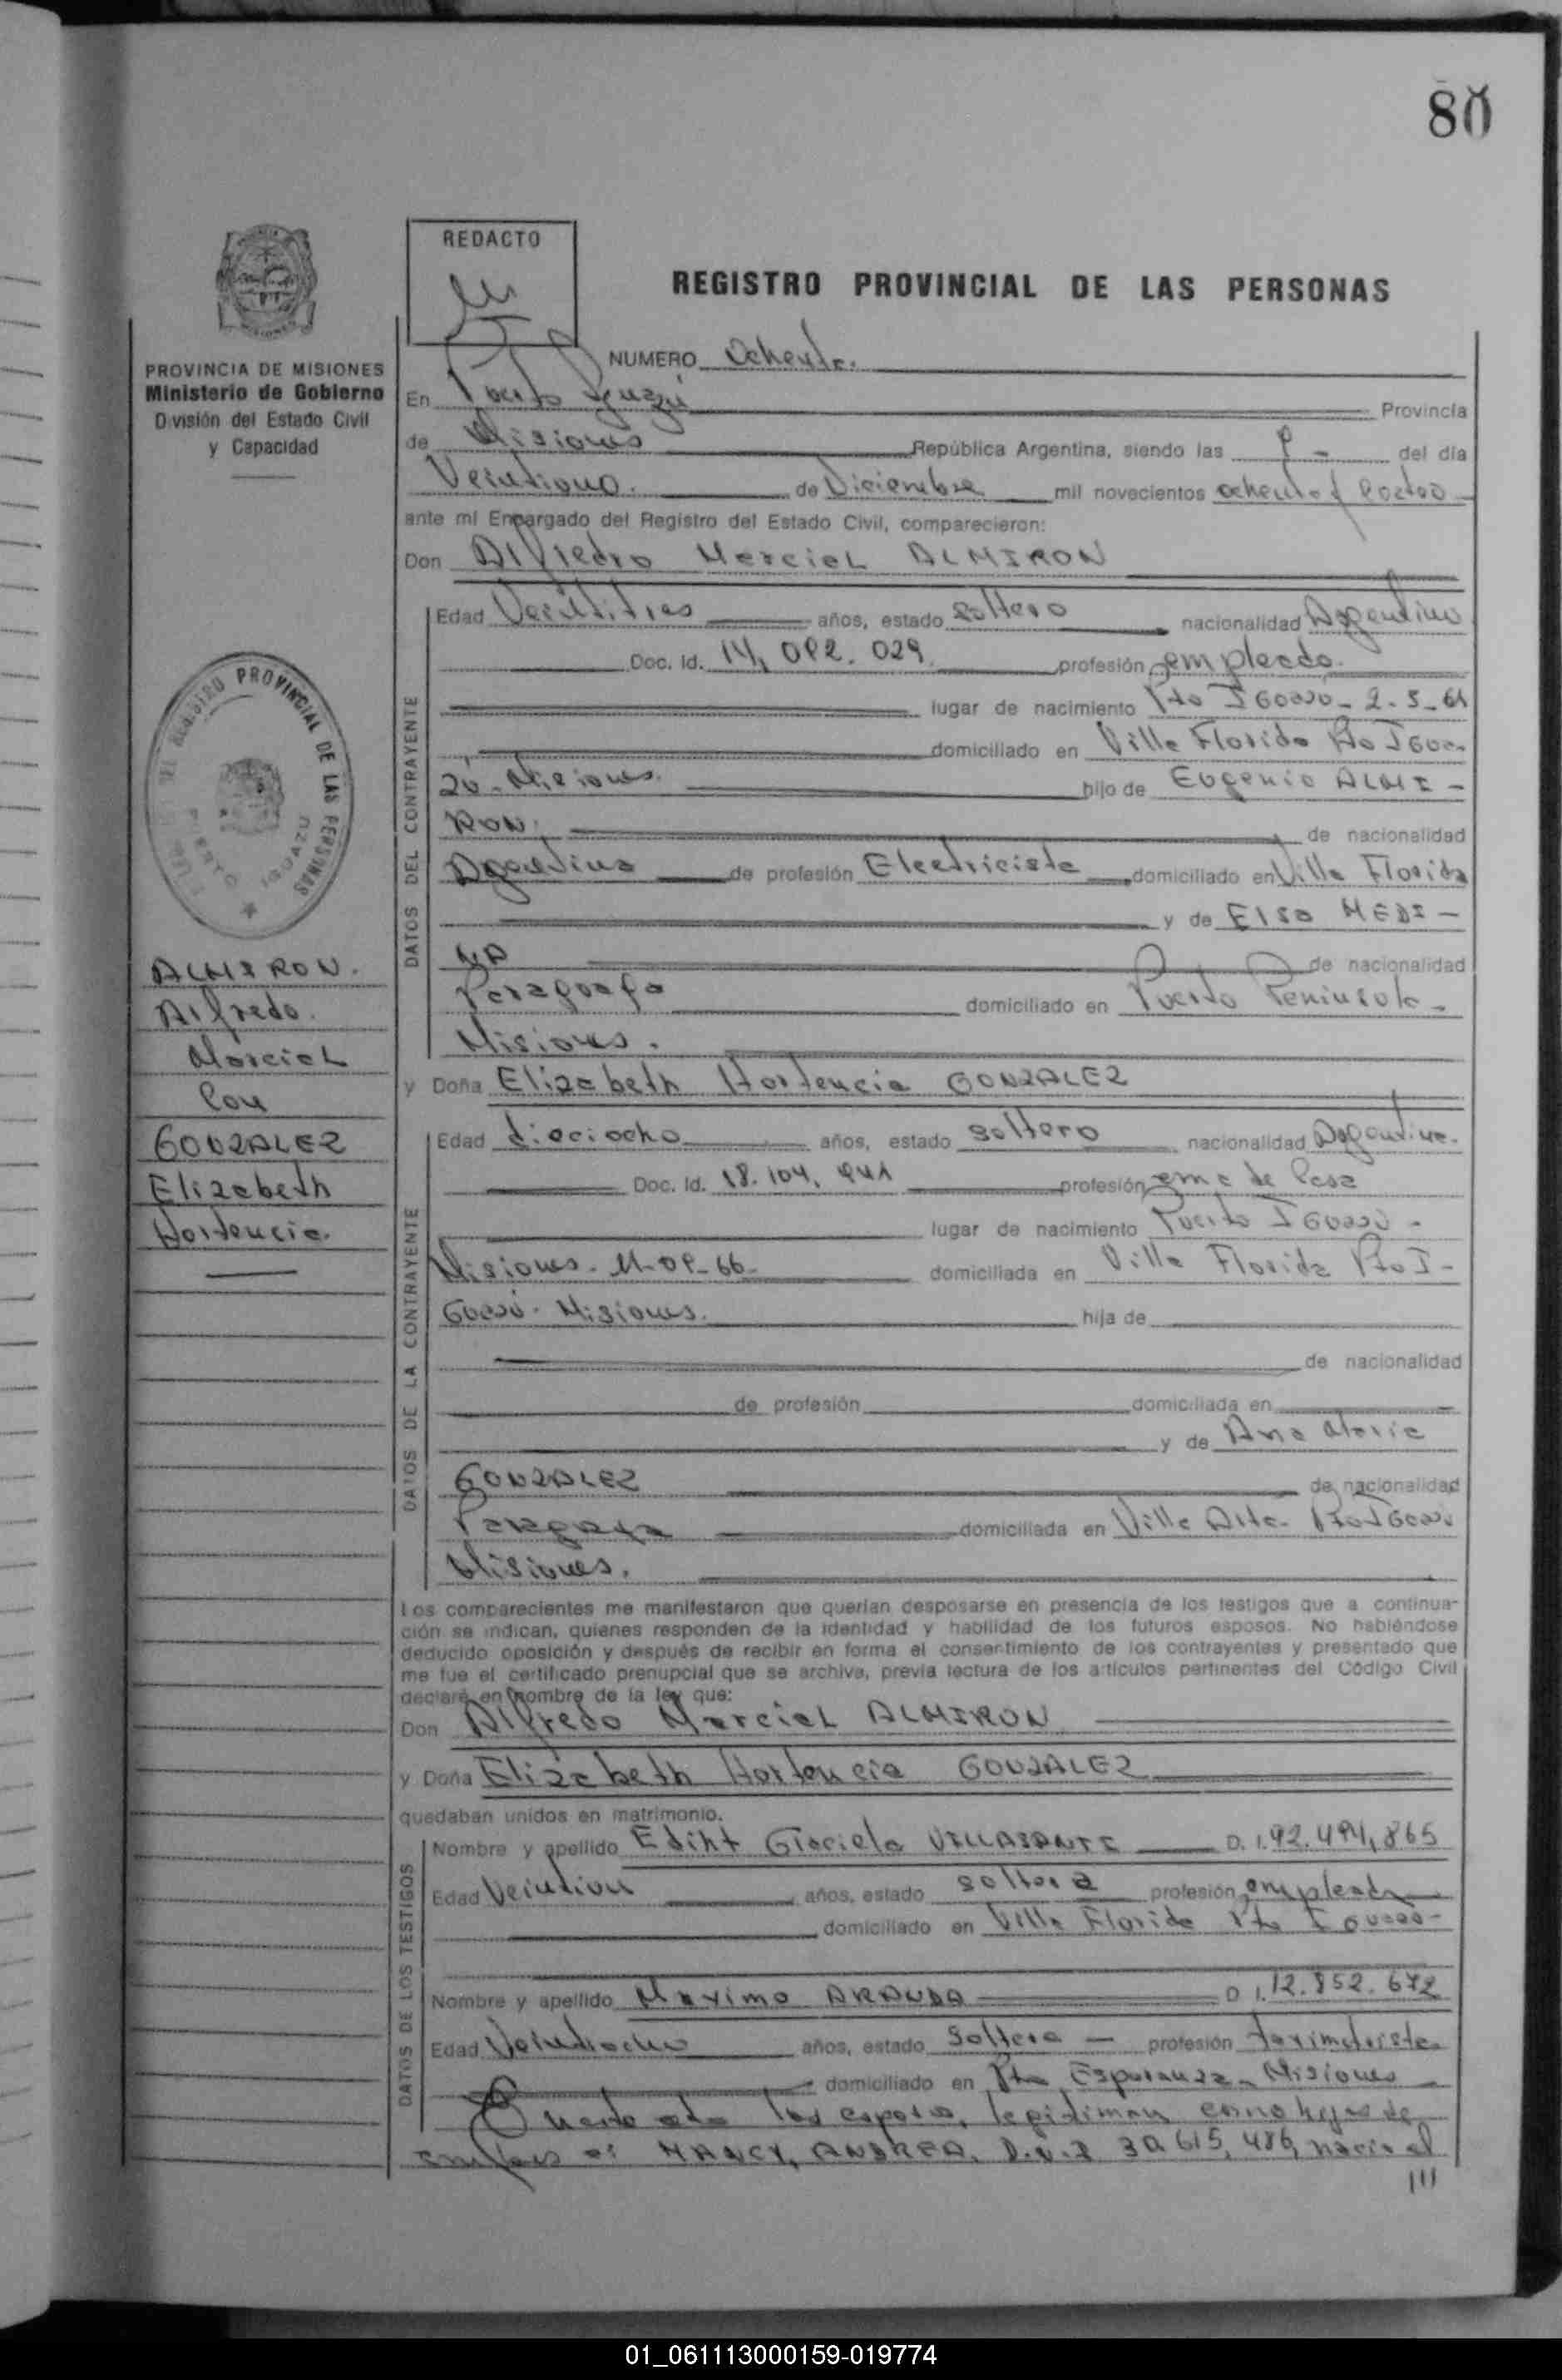 80
REDACTO
REGISTRO PROVINCIAL DE LAS PERSONAS
PROVINCIA DE MISIONES
Ministerio de Gobierno
División del Estado Civil
y Capacidad
NUMERO Ochenta.
En Puerto Iguazú Provincia
de Misiones República Argentina, siendo las 8 - del día
Veintiuno. de Diciembre mil novecientos ochenta y cuatro
ante mí Encargado del Registro del Estado Civil, comparecieron:
Don Alfredo Marcial ALMIRON
DATOS DEL CONTRAYENTE
Edad Veintitres años, estado soltero nacionalidad Argentino
Doc. Id. 14,082.029. profesión empleado.
lugar de nacimiento Pto IGUAZU - 2-5-61
domiciliado en Villa Florida Pto IGUA-
ZU - Misiones. hijo de Eugenio ALMI-
RON, de nacionalidad
Argentina de profesión Electricista domiciliado en Villa Florida
y de Elsa MEDI-
NA de nacionalidad
Paraguaya domiciliado en Puerto Peninsula-
Misiones.
y Doña Elizabeth Hortencia GONZALEZ
DATOS DE LA CONTRAYENTE
Edad dieciocho años, estado soltera nacionalidad Argentina.
Doc. Id. 18.104. profesión ama de Casa
lugar de nacimiento Puerto IGUAZU -
Misiones - 11-08-66 - domiciliada en Villa Florida Pto I-
GUAZU - Misiones. hija de
de nacionalidad
de profesión domiciliada en
y de Ana Maria
GONZALEZ de nacionalidad
Paraguaya domiciliada en Villa Alta - Pto IGUAZU
Misiones.
Los comparecientes me manifestaron que querían desposarse en presencia de los testigos que a continua-
ción se indican, quienes responden de la identidad y habilidad de los futuros esposos. No habiéndose
deducido oposición y después de recibir en forma el consentimiento de los contrayentes y presentado que
me fue el certificado prenupcial que se archiva, previa lectura de los artículos pertinentes del Código Civil
declaré en nombre de la ley que:
Don Alfredo Marcial ALMIRON
y Doña Elizabeth Hortencia GONZALEZ
quedaban unidos en matrimonio.
DATOS DE LOS TESTIGOS
Nombre y apellido Ediht Graciela VILLASANTE D. I. 92.494,865
Edad Veintiun años, estado soltera profesión empleada
domiciliado en Villa Florida Pto
Nombre y apellido Maximo ARANDA D. I. 12.852.672
Edad Veintiocho años, estado Soltero - profesión taximetrista
domiciliado en Pto Esperanza - Misiones
los esposos, legitiman como hijos de
ambos a: NANCY, ANDREA, D.N.I 30.615,486, nacio el
III
REGISTRO PROVINCIAL DE LAS PERSONAS
PUERTO IGUAZU
ALMIRON.
Alfredo.
Marcial
Con
GONZALEZ
Elizabeth
Hortencia.
01_061113000159-019774